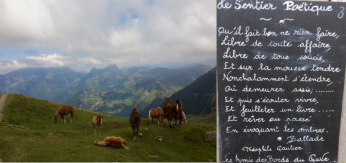 de Sentier Poétique
Qu'il fait bon ne rien faire,
Libre de toute affaire,
Libre de tous soucis,
Et sur la mousse tendre
Nonchalamment s'étendre,
Où demeurer assis;......
Et puis s'écouler vivre,
Et feuilleter un livre.....
Et rêver au passé
En évoquant les ombres.
Ballade
Théophile Gautier
Les Amis des Bords du Gave